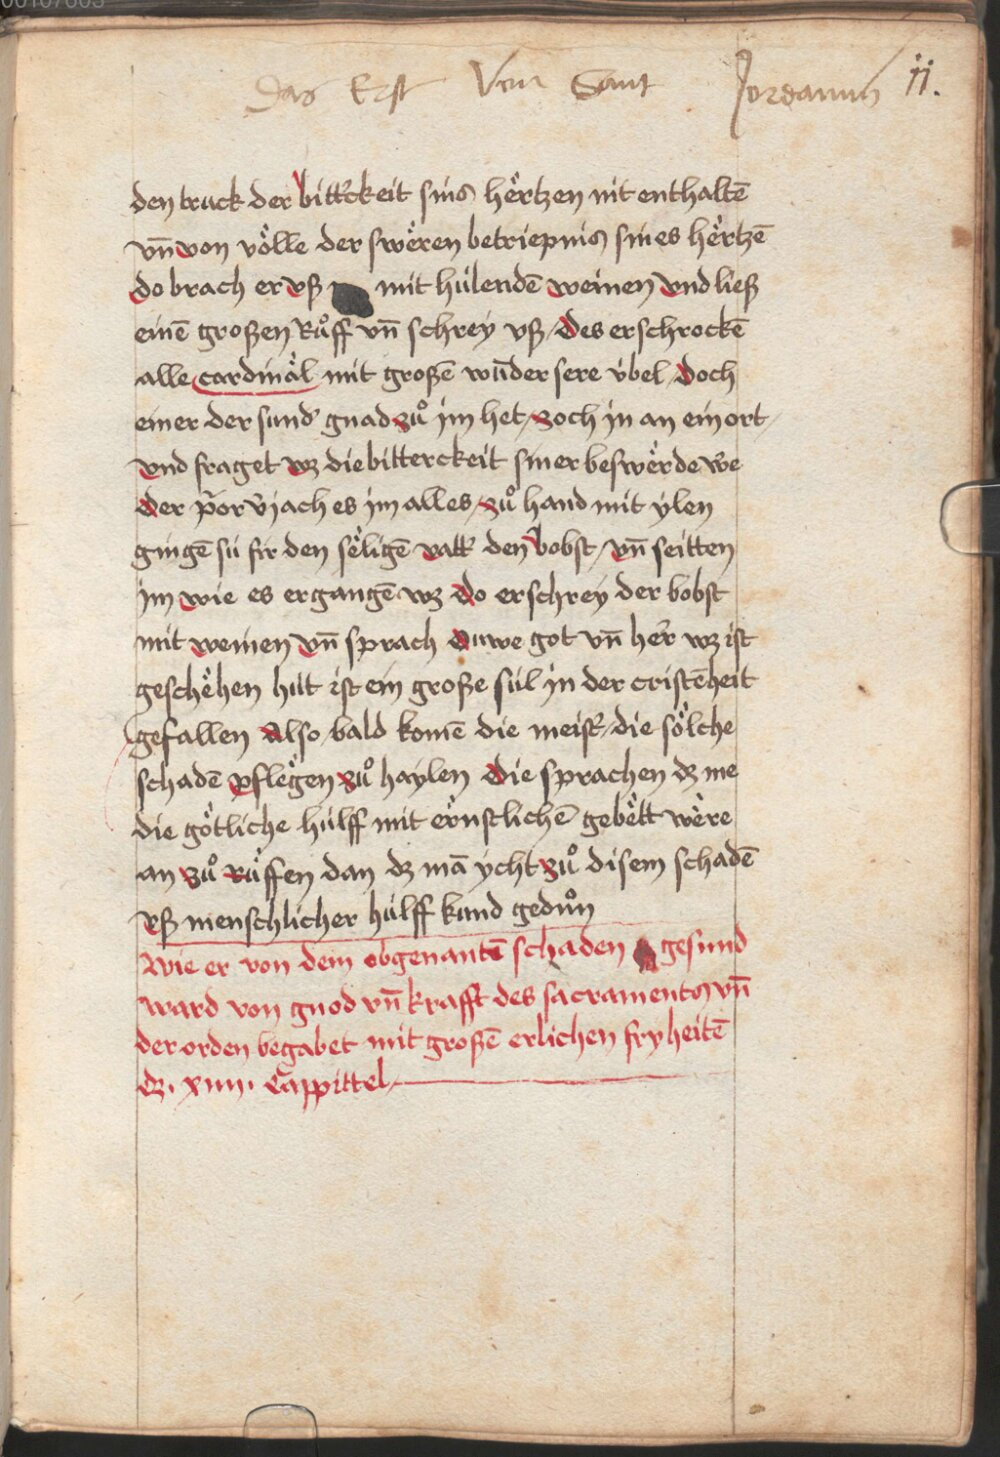 00107603
Das Erst Von Sant Jordanus ii.
den truck der bitt̛ckeit sins hërtzen nit enthaltē
vn̄ von völle der swëren betriepnis sines hërtzē
do brach er vß mit hülendē weinen vnd ließ
einē großen Růff vn̄ schrey vß / des erschrockē
alle cardinäl mit großē wūder sere v̈bel / doch
einer der sund̛ gnad zů im het / zoch in an ein ort /
vnd fraget wz die bitterckeit siner beswërde we
der p̄or v̄jach es im alles / zů hand mit ylen
gingē sü fir den sëligē vatt̛ den bobst / vn̄ seitten
im wie es ergangē wz do erschrey der bobst
mit weinen vn̄ sprach ouwe got vn̄ her̛ wz ist
geschëhen hüt ist ein große sül in der cristēheit
gefallen Also bald komē die meist̛ / die sölche
schadē pflëgen zů haylen die sprachen dz me
die götliche hülff mit ernstlichē gebëtt wëre
an zů rüffen dan dz mā ycht zů disem schadē
vß menschlicher hülff kund gedůn
Wie er von dem obgenantē schaden gesund
ward von gnod vn̄ krafft des sacramentes vn̄
der orden begabet mit großē erlichen fryheitē
dz . xiiii . Cappittel